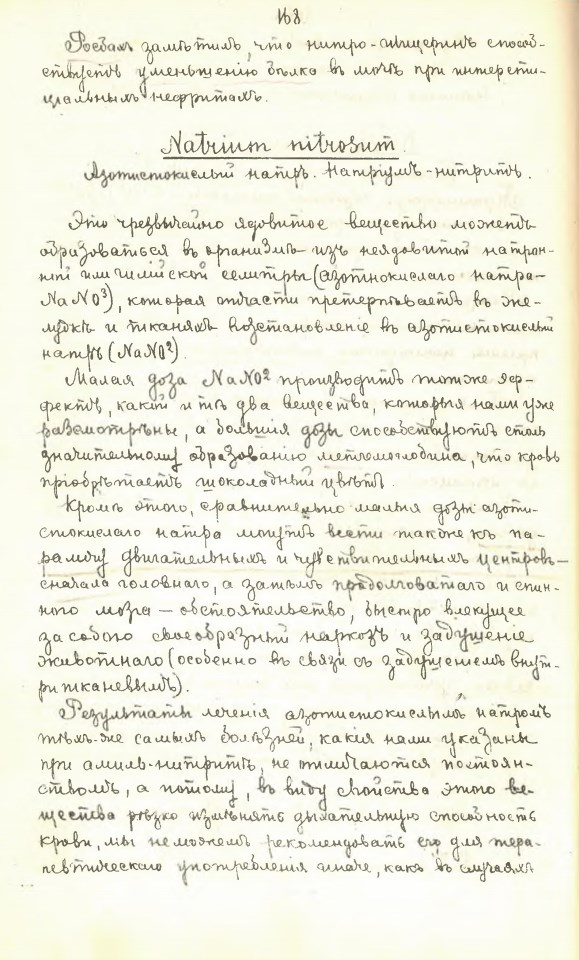 168
замѣтилъ, что нитро-глицеринъ способ-
ствуетъ уменьшенію бѣлка въ мочѣ при интерсти-
ціальныхъ нефритахъ.
Natrium nitrosum.
Азотистокислый натръ. Натріумъ-нитритъ.
Это чрезвычайно ядовитое вещество можетъ
образоваться въ организмѣ изъ неядовитой натрон-
ной или чилійской селитры (азотнокислаго натра-
NaNO³), которая отчасти претерпѣваетъ въ же-
лудкѣ и тканяхъ возстановленіе въ азотистокислый
натръ (NaNO²).
Малая доза NaNO² производитъ тотже эф-
фектъ, какой и тѣ два вещества, которыя нами уже
разсмотрѣны, а большія дозы способствуютъ столь
значительному образованію метгемоглобина, что кровь
пріобрѣтаетъ шоколадный цвѣтъ.
Кромѣ этого, сравнительно малыя дозы азоти-
стокислаго натра могутъ вести также къ па-
раличу двигательныхъ и чувствительныхъ центровъ-
сначала головнаго, а затѣмъ продолговатаго и спин-
ного мозга — обстоятельство, быстро влекущее
за собою своеобразный наркозъ и задушеніе
животнаго (особенно въ связи съ задушеніемъ внут-
ритканевымъ).
Результаты леченія азотистокислымъ натромъ
тѣхъ-же самыхъ болѣзней, какія нами указаны
при амиль-нитритѣ, не отличаются постоян-
ствомъ, а потому, въ виду свойства этого ве-
щества рѣзко измѣнять дыхательную способность
крови, мы неможемъ рекомендовать его для тера-
певтическаго употребленія иначе, какъ въ случаяхъ